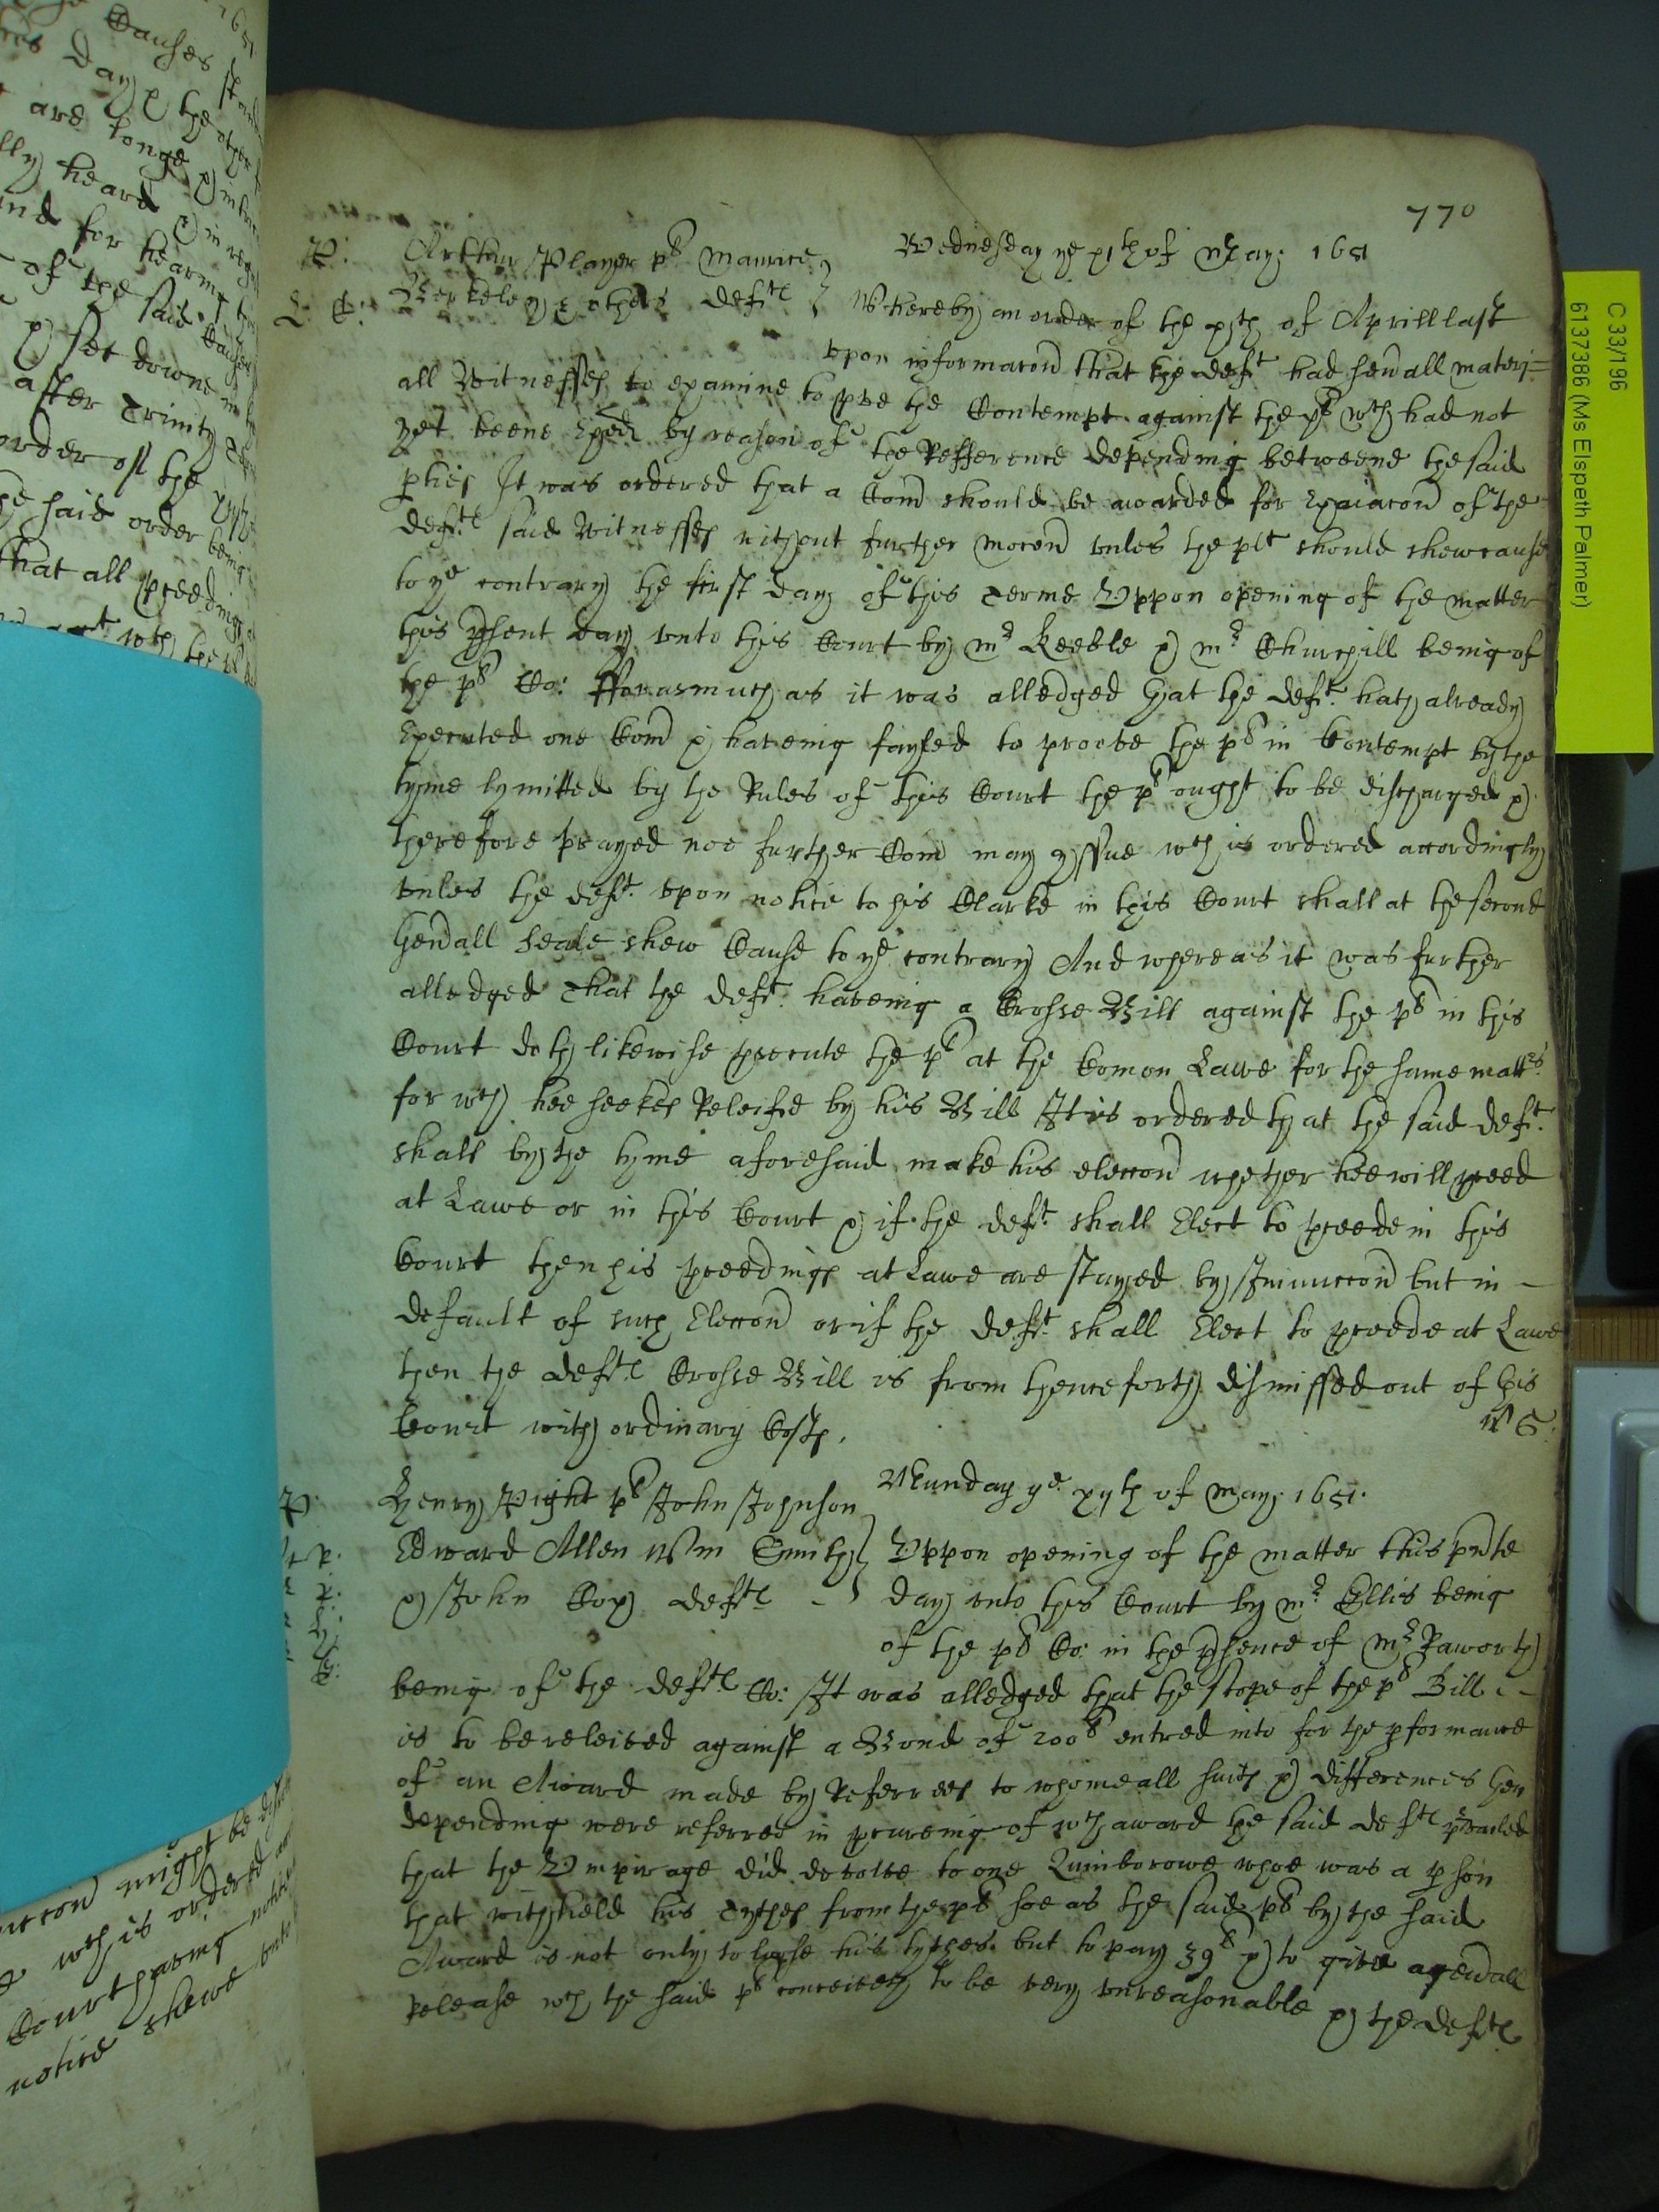 770
P: Arthur Player pl Maurice
L: C: Berkeley & others defts
Wednesday ye xxjth of May: 1651
Whereby an order of the xjth of Aprill last
upon informacon that the deft had sevall materi=
all Witnesses to examine to pve the Contempt against the pl wch had not
yet beene Exed by reason of the Refference depending betweene the said
pties It was ordered that a Com should be awarded for Exaiacon of the
defts said Witnesses without further mocon unles the plt should shew cause
to ye contrary the first day of this Terme Uppon opening of the matter
this psent day unto this Court by mr Keeble & mr Churchill being of
the pl Co: Fforasmuch as it was alledged that the deft. hath already
Executed one Com & haveing fayled to proove the pl in Contempt by the
tyme lymitted by the Rules of this Court the pl ought to be discharged &
therefore prayed noe further Com may yssue wch is ordered accordingly
unles the deft. upon notice to his Clarke in this Court shall at the second
Genall Seale shew Cause to ye contrary And whereas it was further
alledged That the deft. haveing a Crosse Bill against the pl in this
Court doth likewise psecute the pl at the Comon Lawe for the same mattrs
for wch hee seekes Releife by his Bill It is ordered that the said deft.
shall by the tyme aforesaid make his eleccon whether hee will pceed
at Lawe or in this Court & if the deft shall Elect to pceede in this
Court then his pceedings at Lawe are stayed by Iniunccon but in -
default of such Eleccon or if the deft. shall Elect to pceede at Lawe
then the defts Crosse Bill is from thenceforth dismissed out of this
Court with ordinary Costs.
W S
P. Henry Pight pl John Johnson
Edward Allen Wm Smith
& John Cox defts -
Munday ye xijth of May: 1651.
Uppon opening of the matter this pnte
day unto this Court by mr Ellis being
of the pl Co: in the psence of mr Raworth
being of the defts Co: It was alledged that the scope of the pl Bill -
is to be releived against a Bond of 200l entred into for the pformance
of an Award made by Referrees to whome all suits & differences then
depending were referred in pcureing of wch award the said defts pvailed
that the Umpirage did devolve to one Quinborowe whoe was a pson
that withheld his Tythes from the pl soe as the said pl by the said
Award is not only to loose his tythes but to pay 39l & to give a genall
Release wch the said pl conceiveth to be very unreasonable & the defts
C 33/196
6137386 (Ms Elspeth Palmer)